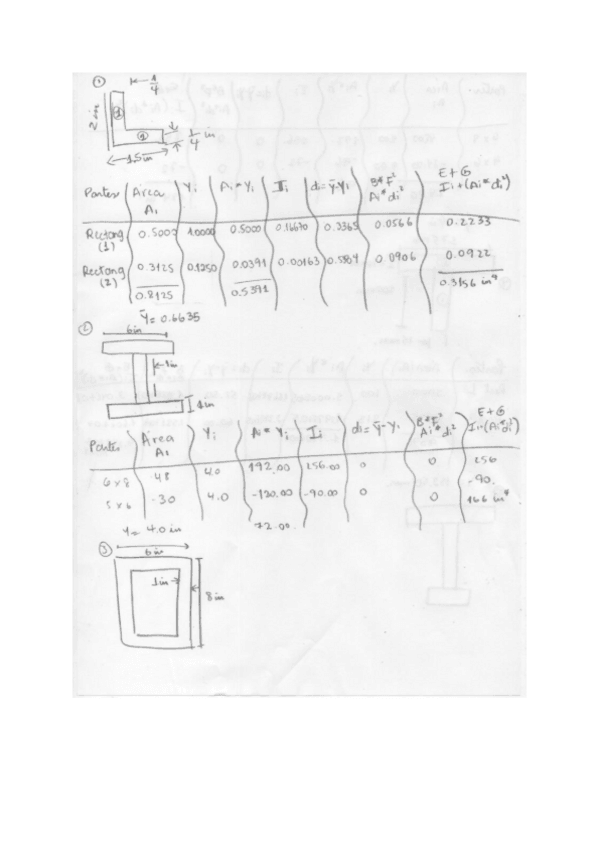 ① 1/4
2 in ① ① 1/4 in
1.5 in
Partes Area Ai Yi Ai * Yi Ii di = ȳ-Yi B*F² Ai* di² E+G Ii + (Ai* di²)
Rectang (1) 0.5000 1.0000 0.5000 0.16670 0.3365 0.0566 0.2233
Rectang (2) 0.3125 0.1250 0.0391 0.00163 0.5384 0.0906 0.0922
0.8125 0.5391 0.3156 in⁴
Ȳ = 0.6635
② 6 in
1 in
Partes Area Yi Ai * Yi Ii di = ȳ-Yi B*F² Ai* di² E+G Ii+(Ai* di²)
6 x 8 48 4.0 192.00 256.00 0 0 256
5 x 6 -30 4.0 -120.00 -90.00 0 0 -90.
72.00 166 in⁴
Y = 4.0 in
③ 6 in
1 in 8 in